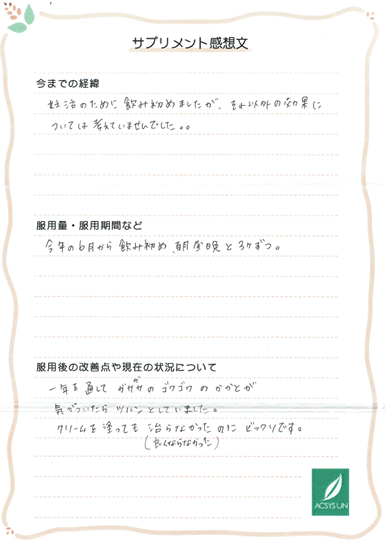 サプリメント感想文
今までの経緯
妊活のために飲み初めましたが、それ以外の効果に
ついては考えていませんでした。。
服用量・服用期間など
今年の6月から飲み初め、朝昼晩と3ケずつ。
服用後の改善点や現在の状況について
一年を通して ガサガサのゴワゴワのかかとが
気がついたらツルンとしていました。
クリームを塗っても治らなかったのにビックリです。
(良くならなかった)
ACSYSUN